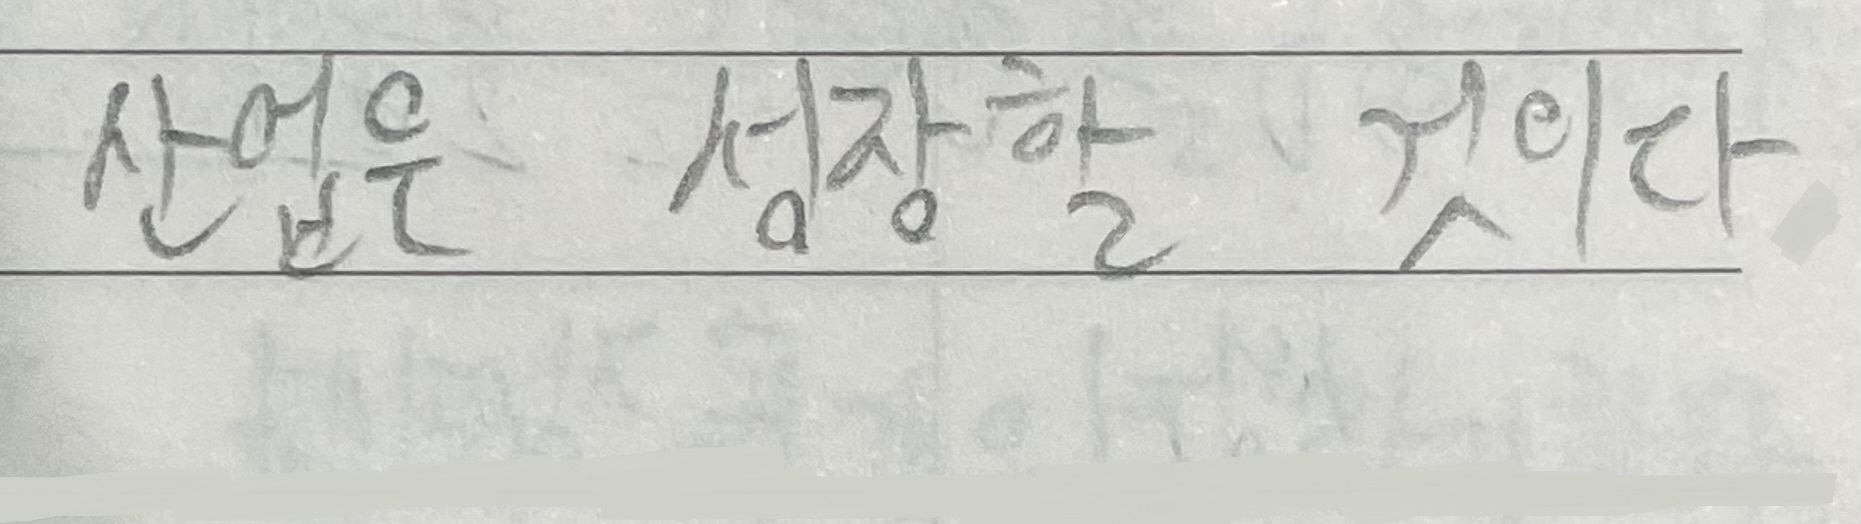 산업은 성장할 것이다